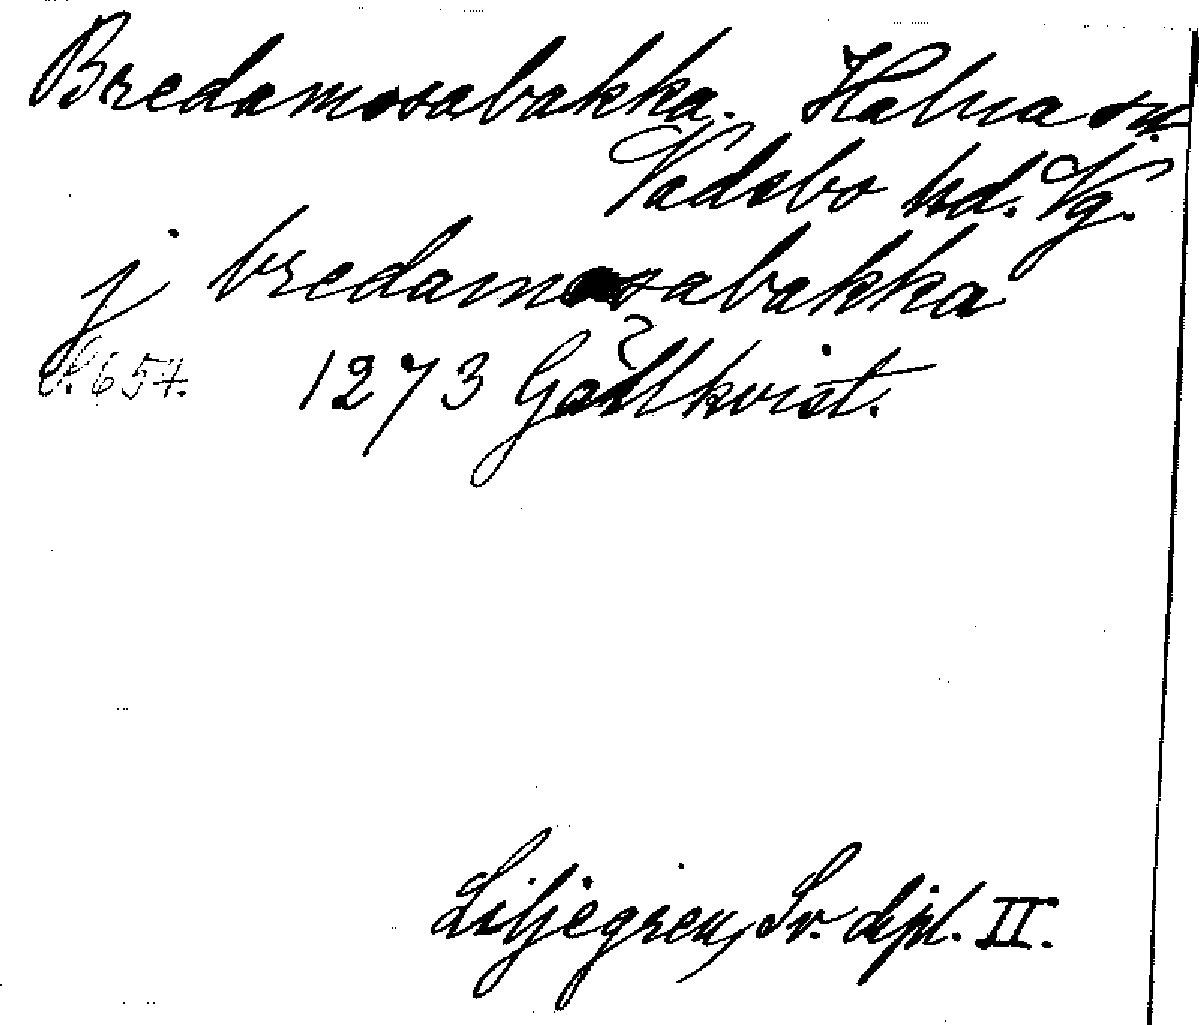 Bredamosabakka. Halna sn.
Vadsbo hd. Vg.
j bredamosabakka
S. 654. 1273 Gallkvist.
Liljegren, Sv. dipl. II.